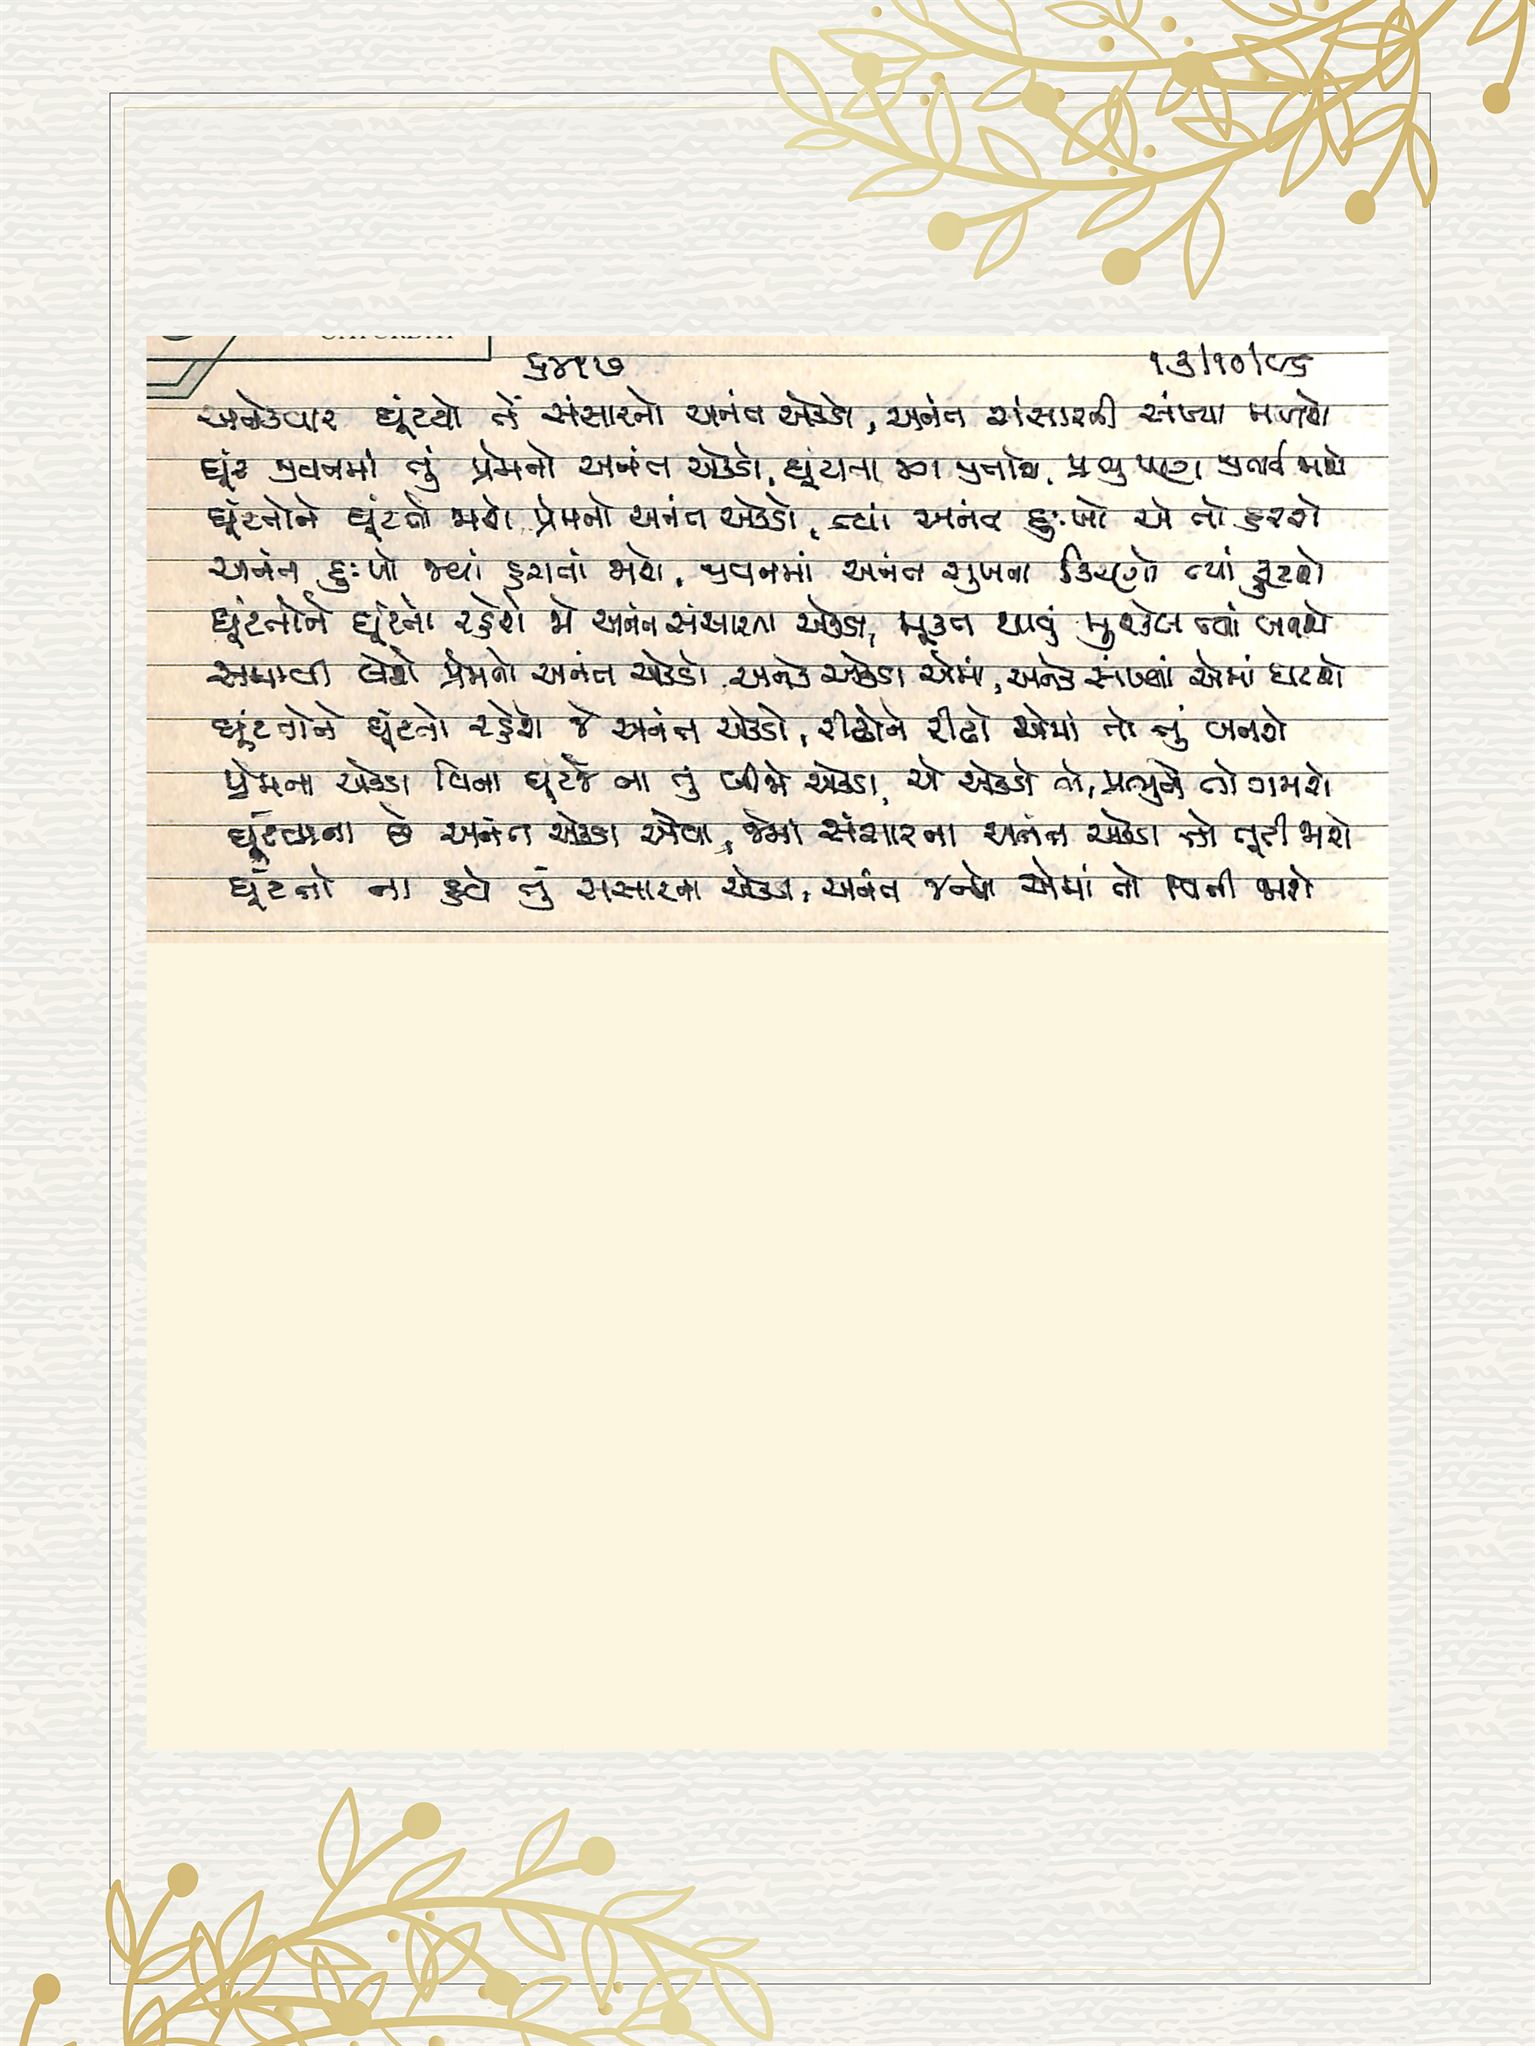 ૬૪૧૭ ૧૩/૧૦/૯૬
અનેકવાર ઘૂંટયો તેં સંસારનો અનંત એકડો, અનંત સંસારની સંખ્યા મળશે
ઘૂંટ જીવનમાં તું પ્રેમનો અનંત એકડો, ઘૂંટાતા પ્રભુ પણ જીતાઈ જાશે
ઘૂંટતોને ઘૂંટતો જાશે પ્રેમનો અનંત એકડો, ત્યાં અનંત દુઃખો એ તો હરશે
અનંત દુઃખો જ્યાં હરાતાં જાશે, જીવનમાં અનંત સુખના કિરણો ત્યાં ફૂટશે
ઘૂંટતોને ઘૂંટતો રહેશે જો અનંત સંસારના એકડા, મુક્ત થાવું મુશ્કેલ ત્યાં બનશે
સમાવી લેશે પ્રેમનો અનંત એકડો અનેક એકડા એમાં, અનેક સંખ્યા એમાં ઘટશે
ઘૂંટતોને ઘૂંટતો રહેશે જે અનંત એકડો, રીઢોને રીઢો એમાં તો તું બનશે
પ્રેમના એકડા વિના ઘૂંટજે ના તું બીજો એકડા, એ એકડો તો, પ્રભુને તો ગમશે
ઘૂંટવાના છે અનંત એકડા એવા, જેમાં સંસારના અનંત એકડા તો તૂટી જાશે
ઘૂંટતો ના હવે તું સંસારના એકડા, અનંત જન્મો એમાં તો વિતી જાશે